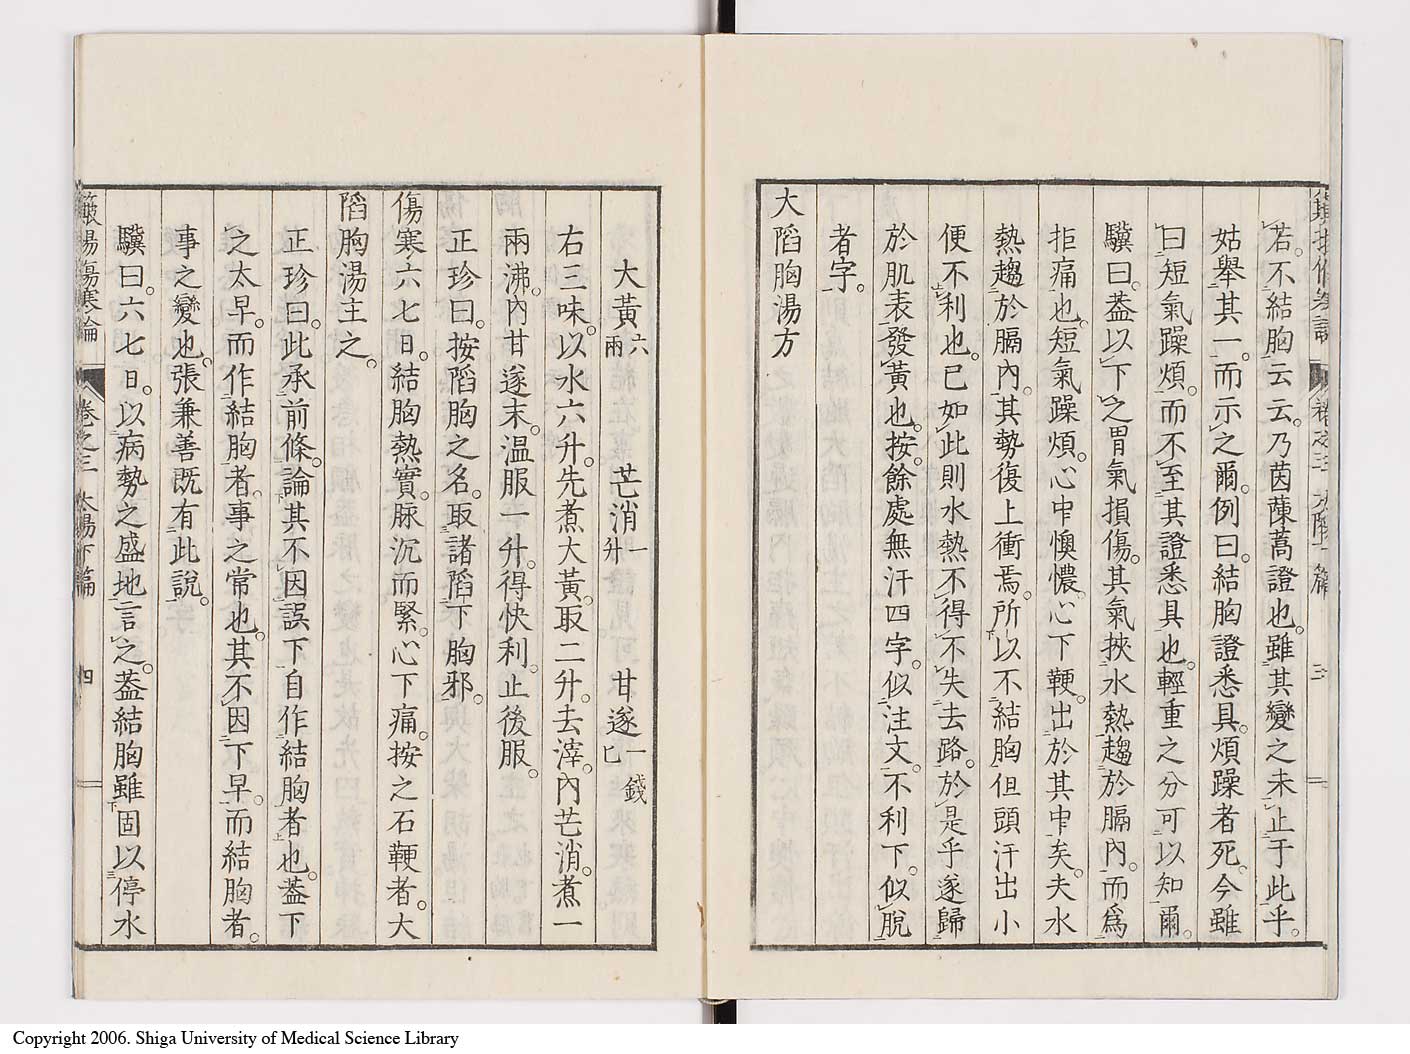 若。不結胸云云。乃茵蔯蒿證也。雖其變之未止于此乎。
姑舉其一。而示之爾。例曰。結胸證悉具。煩躁者死。今雖
曰短氣躁煩。而不至其證悉具也。輕重之分可以知爾。
驥曰。蓋以下之胃氣損傷。其氣挾水熱趨於膈內。而爲
拒痛也。短氣躁煩。心中懊憹。心下鞕。出於其中矣。夫水
熱趨於膈內。其勢復上衝焉。所以不結胸但頭汗出小
便不利也。已如此則水熱不得不失去路。於是乎遂歸
於肌表發黃也。按。餘處無汗四字。似注文。不利下。似脫
者字。
大陷胸湯方
大黃六兩 芒消一升 甘遂一錢匕
右三味。以水六升。先煮大黃。取二升。去滓。內芒消。煮一
兩沸。內甘遂末。溫服一升。得快利。止後服。
正珍曰。按陷胸之名。取諸陷下胸邪。
傷寒六七日。結胸熱實。脉沉而緊。心下痛。按之石鞕者。大
陷胸湯主之。
正珍曰。此承前條。論其不因誤下自作結胸者也。蓋下
之太早。而作結胸者。事之常也。其不因下早。而結胸者。
事之變也。張兼善既有此說。
驥曰。六七日。以病勢之盛地言之。蓋結胸雖固以停水
卷之三 太陽下篇 四
Copyright 2006. Shiga University of Medical Science Library